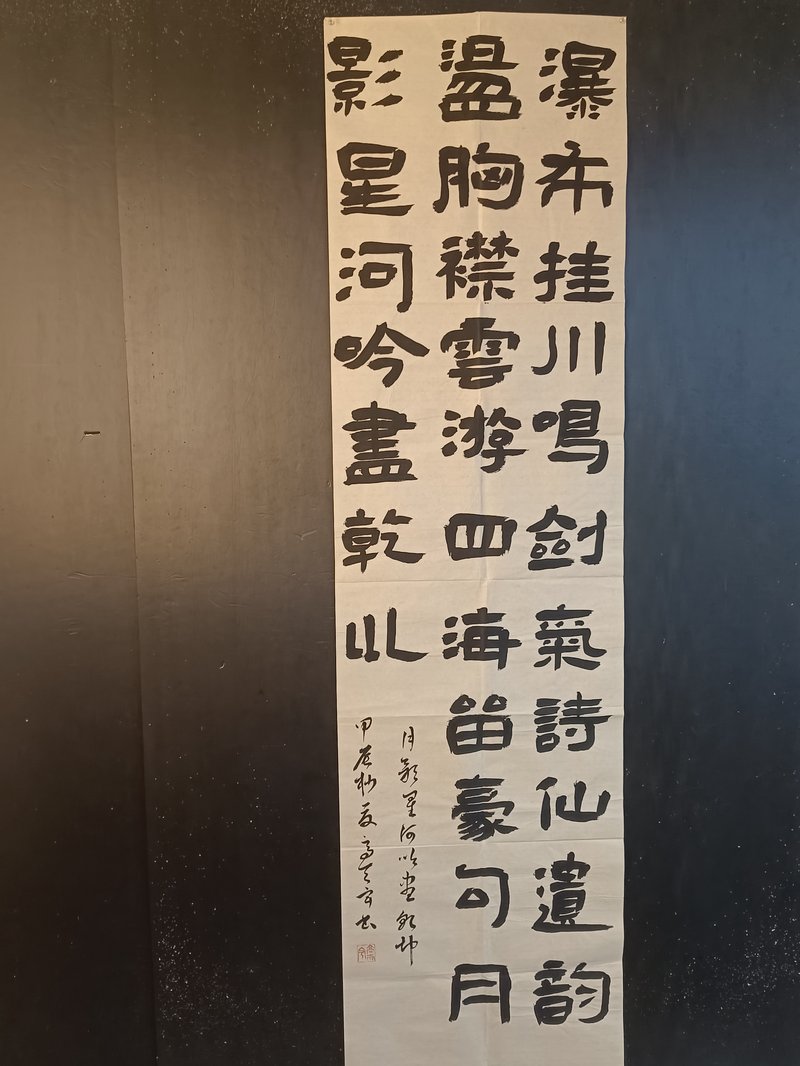 瀑布挂川鳴劍氣詩仙遺韵
溫胸襟雲游四海留豪句月
影星河吟盡乾坤
月影星河吟盡乾坤
甲辰杪夏高書